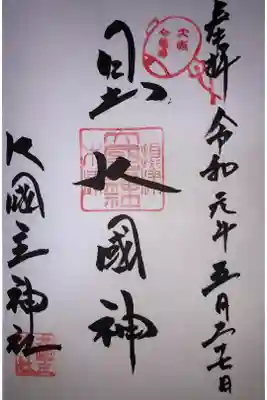 奉拝 令和元年五月二十七日
日出大國神
大國主神社
大阪
七福神